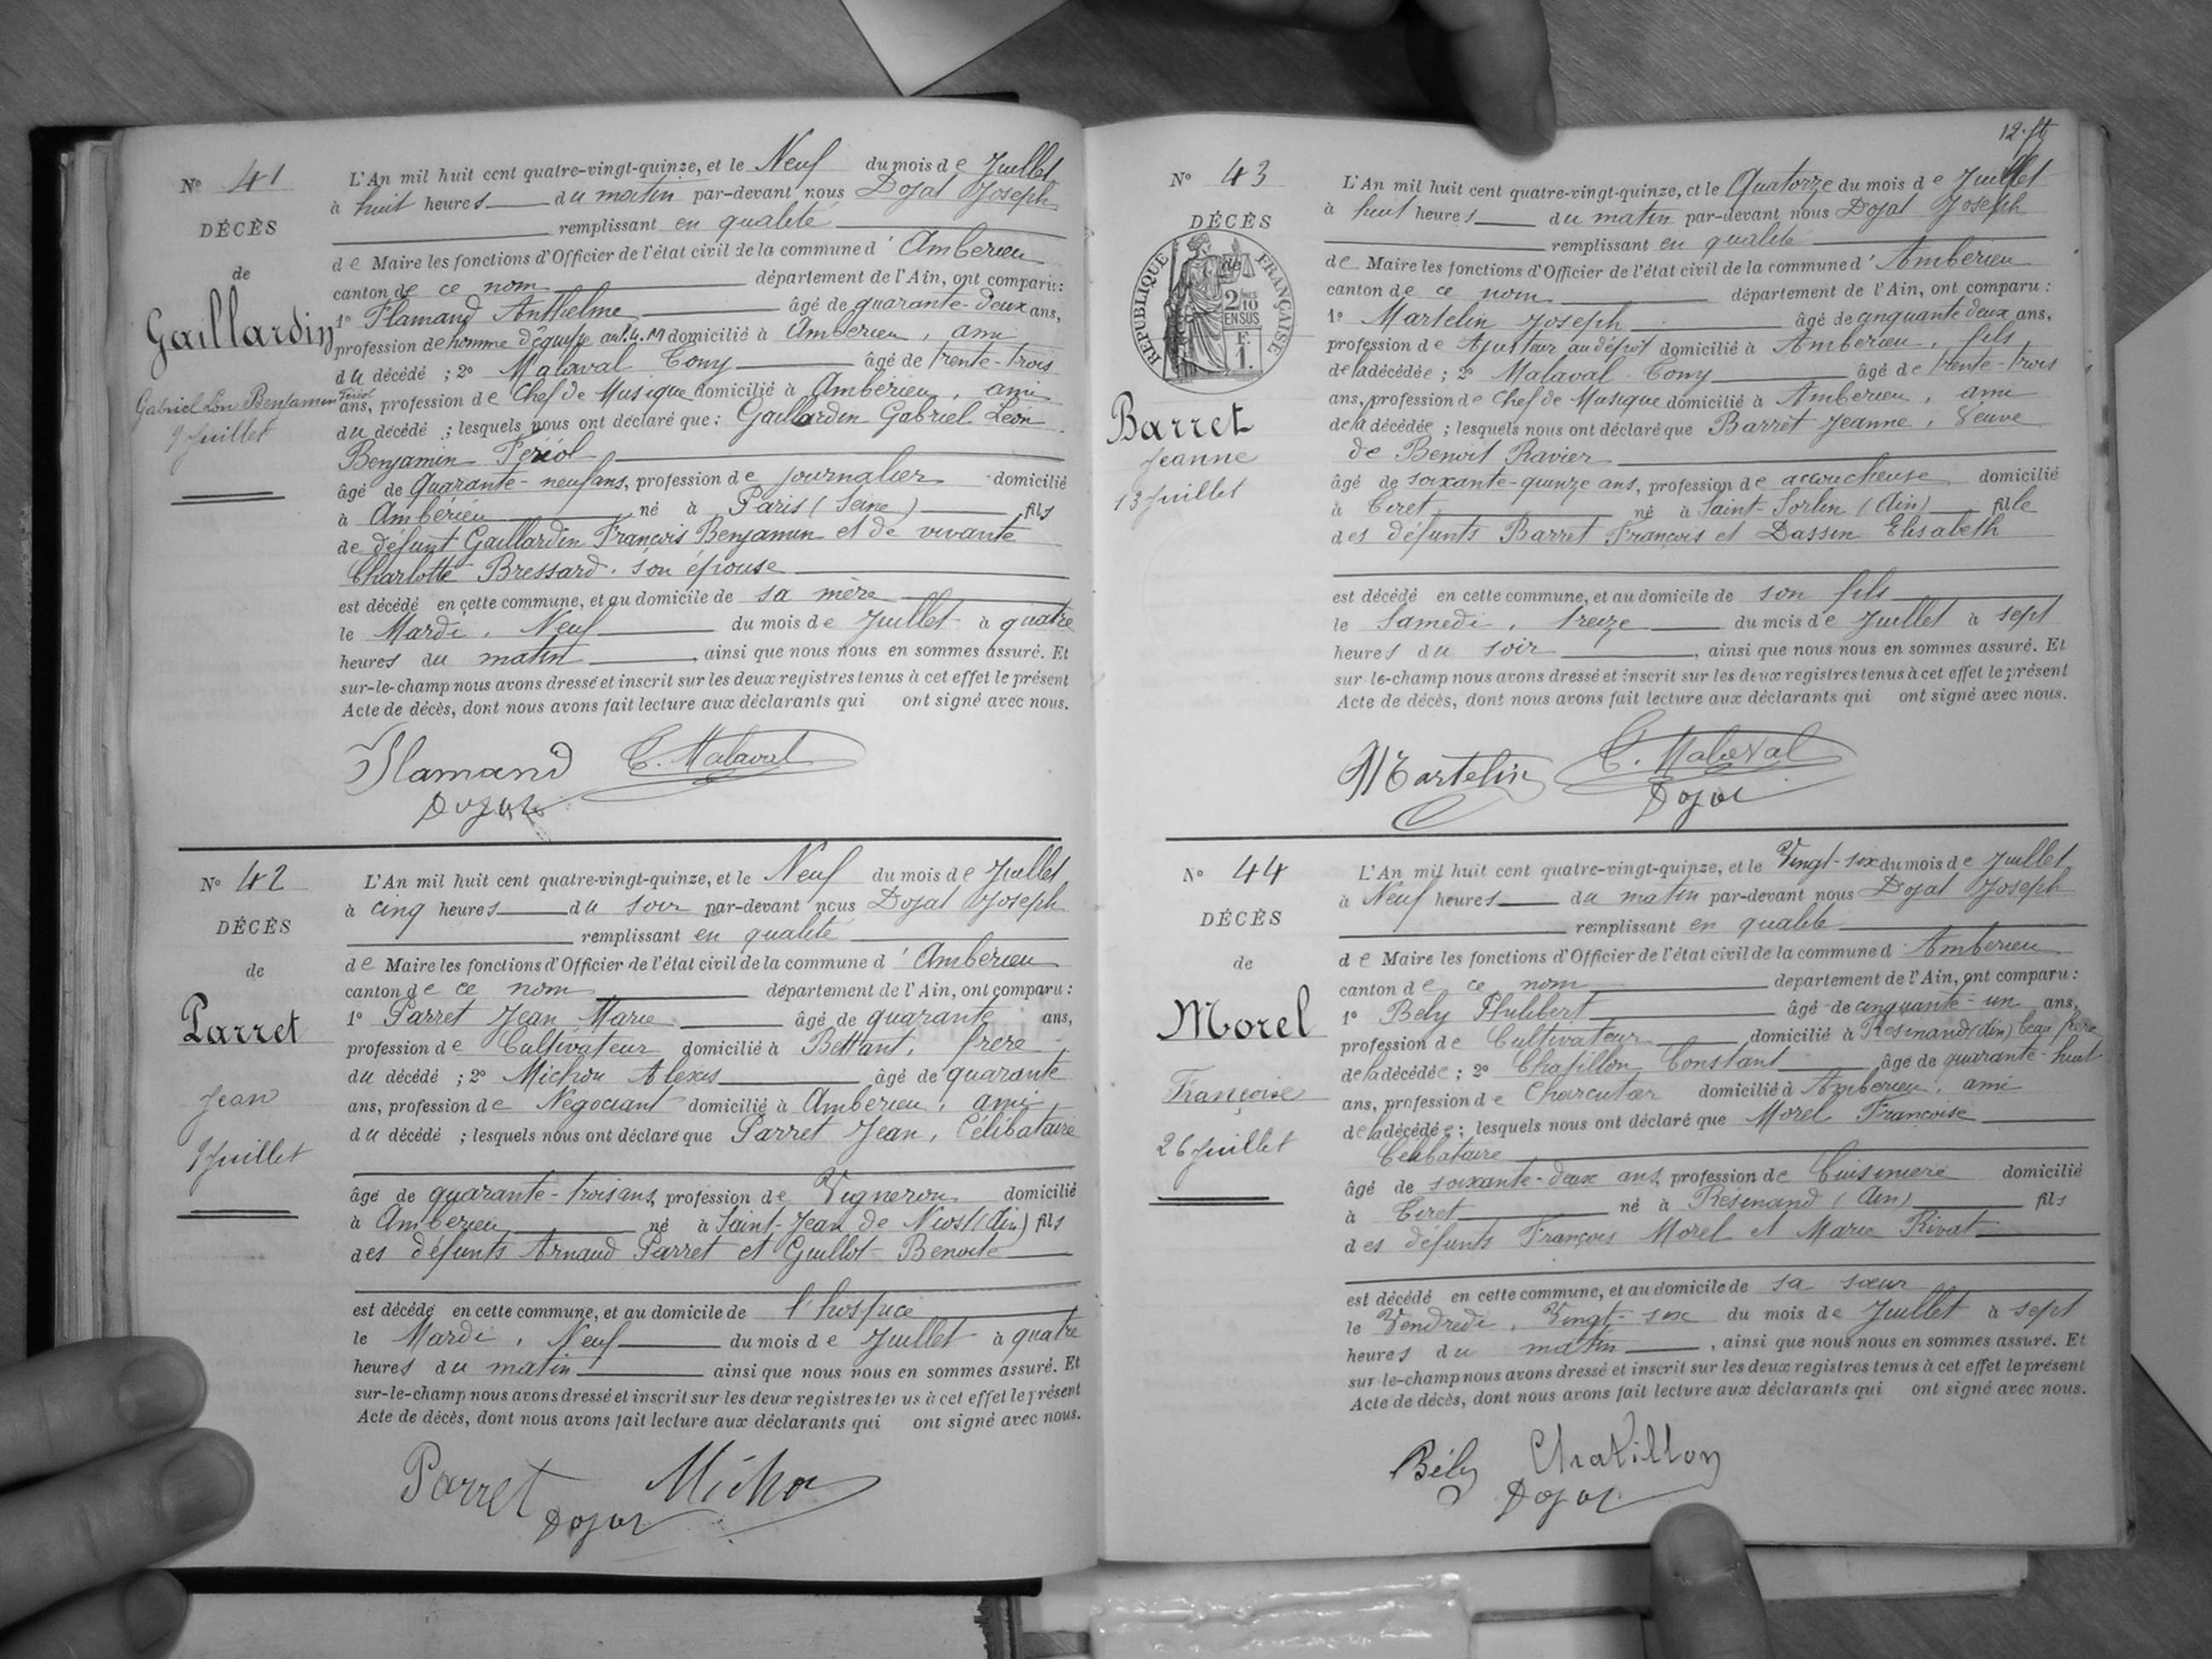 N° 41
DÉCÈS
de
Gaillardin
Gabriel Léon Benjamin
Fériol
9 Juillet
L'An mil huit cent quatre-vingt-quinze, et le Neuf du mois de Juillet
à huit heures du matin par-devant nous Dojat Joseph
remplissant en qualité
de Maire les fonctions d'Officier de l'état civil de la commune d'Ambérieu
canton de ce nom département de l'Ain, ont comparu:
1° Flamand Anthelme âgé de quarante-deux ans,
profession de homme d'équipe domicilié à Ambérieu, ami
du décédé ; 2° Malaval Tony âgé de trente-trois
ans, profession de Chef de Musique domicilié à Ambérieu, ami
du décédé ; lesquels nous ont déclaré que: Gaillardin Gabriel Léon
Benjamin Fériol
âgé de Quarante-neuf ans, profession de journalier domicilié
à Ambérieu né à Paris (Seine) fils
de défunt Gaillardin François Benjamin et de vivante
Charlotte Bressard, son épouse
est décédé en cette commune, et au domicile de sa mère
le Mardi, Neuf du mois de Juillet à quatre
heures du matin, ainsi que nous nous en sommes assuré. Et
sur-le-champ nous avons dressé et inscrit sur les deux registres tenus à cet effet le présent
Acte de décès, dont nous avons fait lecture aux déclarants qui ont signé avec nous.
Flamand T. Malaval
Dojat
N° 42
DÉCÈS
de
Parret
Jean
9 Juillet
L'An mil huit cent quatre-vingt-quinze, et le Neuf du mois de Juillet
à cinq heures du soir par-devant nous Dojat Joseph
remplissant en qualité
de Maire les fonctions d'Officier de l'état civil de la commune d'Ambérieu
canton de ce nom département de l'Ain, ont comparu:
1° Parret Jean Marie âgé de quarante ans,
profession de Cultivateur domicilié à Bettant, frère
du décédé ; 2° Michou Alexis âgé de quarante
ans, profession de Négociant domicilié à Ambérieu, ami
du décédé ; lesquels nous ont déclaré que Parret Jean, Célibataire
âgé de quarante-trois ans, profession de Vigneron domicilié
à Ambérieu né à Saint-Jean de Niost (Ain) fils
des défunts Arnaud Parret et Guillot Benoite
est décédé en cette commune, et au domicile de l'hospice
le Mardi, Neuf du mois de Juillet à quatre
heures du matin ainsi que nous nous en sommes assuré. Et
sur-le-champ nous avons dressé et inscrit sur les deux registres tenus à cet effet le présent
Acte de décès, dont nous avons fait lecture aux déclarants qui ont signé avec nous.
Parret Michou
Dojat
12.
N° 43
DÉCÈS
de
RÉPUBLIQUE FRANÇAISE
2 10
EN SUS
F.
1.
Barret
Jeanne
13 Juillet
L'An mil huit cent quatre-vingt-quinze, et le Quatorze du mois de Juillet
à huit heures du matin par-devant nous Dojat Joseph
remplissant en qualité
de Maire les fonctions d'Officier de l'état civil de la commune d'Ambérieu
canton de ce nom département de l'Ain, ont comparu :
1° Martelin Joseph âgé de cinquante deux ans,
profession de Ajusteur au dépôt domicilié à Ambérieu, fils
de la décédée ; 2° Malaval Tony âgé de trente-trois
ans, profession de Chef de Musique domicilié à Ambérieu, ami
de la décédée ; lesquels nous ont déclaré que Barret Jeanne, Veuve
de Benoit Ravier
âgé de soixante-quinze ans, profession de accoucheuse domicilié
à Tiret né à Saint-Sorlin (Ain) fille
des défunts Barret François et Dassin Elisabeth
est décédé en cette commune, et au domicile de son fils
le Samedi, treize du mois de Juillet à sept
heures du soir, ainsi que nous nous en sommes assuré. Et
sur-le-champ nous avons dressé et inscrit sur les deux registres tenus à cet effet le présent
Acte de décès, dont nous avons fait lecture aux déclarants qui ont signé avec nous.
Martelin T. Malaval
Dojat
N° 44
DÉCÈS
de
Morel
Françoise
26 Juillet
L'An mil huit cent quatre-vingt-quinze, et le Vingt-six du mois de Juillet
à Neuf heures du matin par-devant nous Dojat Joseph
remplissant en qualité
de Maire les fonctions d'Officier de l'état civil de la commune d'Ambérieu
canton de ce nom département de l'Ain, ont comparu :
1° Bely Philibert âgé de cinquante-un ans,
profession de Cultivateur domicilié à Résinand (Ain) beau frère
de la décédée ; 2° Chatillon Constant âgé de quarante-huit
ans, profession de Charcutier domicilié à Ambérieu, ami
de la décédée ; lesquels nous ont déclaré que Morel Françoise
Célibataire
âgé de soixante-deux ans, profession de Cuisinière domicilié
à Tiret né à Résinand (Ain) fils
des défunts François Morel et Marie Rivat
est décédé en cette commune, et au domicile de sa sœur
le Vendredi, Vingt-six du mois de Juillet à sept
heures du matin, ainsi que nous nous en sommes assuré. Et
sur-le-champ nous avons dressé et inscrit sur les deux registres tenus à cet effet le présent
Acte de décès, dont nous avons fait lecture aux déclarants qui ont signé avec nous.
Bély Chatillon
Dojat